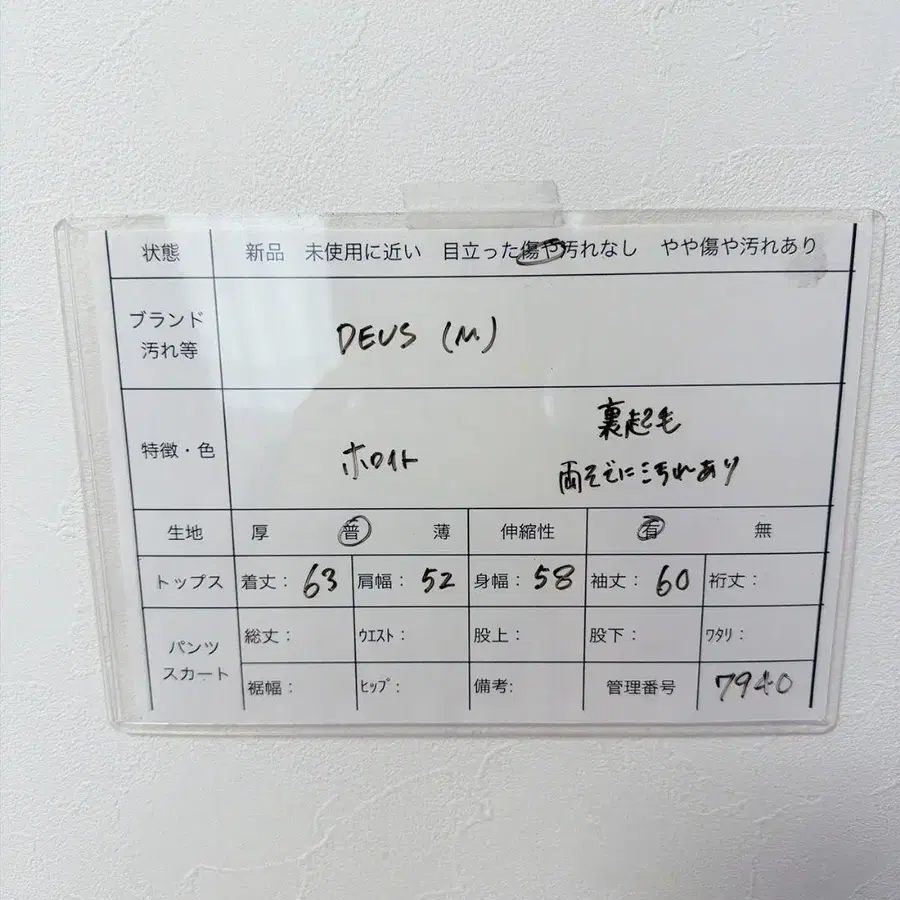 状態 新品 未使用に近い 目立った傷や汚れなし やや傷や汚れあり
ブランド
汚れ等
DEUS (M)
特徴・色
ホワイト
裏起毛
両そでに汚れあり
生地 厚 普 薄 伸縮性 有 無
トップス 着丈: 63 肩幅: 52 身幅: 58 袖丈: 60 裄丈:
パンツ
スカート
総丈: ウエスト: 股上: 股下: ワタリ:
裾幅: ヒップ: 備考: 管理番号 7940